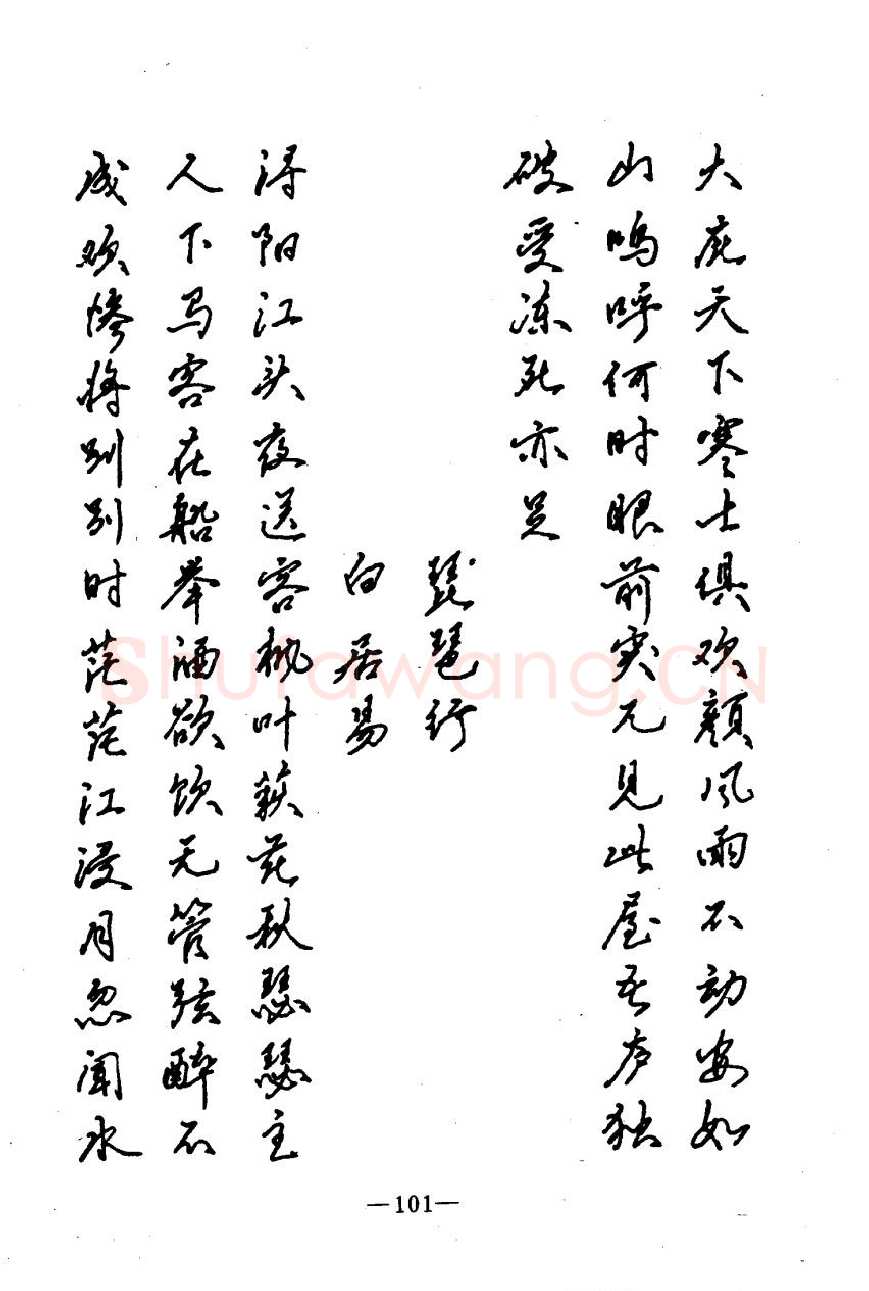 大庇天下寒士俱欢颜风雨不动安如
山呜呼何时眼前突兀见此屋吾庐独
破受冻死亦足
琵琶行
白居易
浔阳江头夜送客枫叶荻花秋瑟瑟主
人下马客在船举酒欲饮无管弦醉不
成欢惨将别别时茫茫江浸月忽闻水
—101—
Shufawang.CN